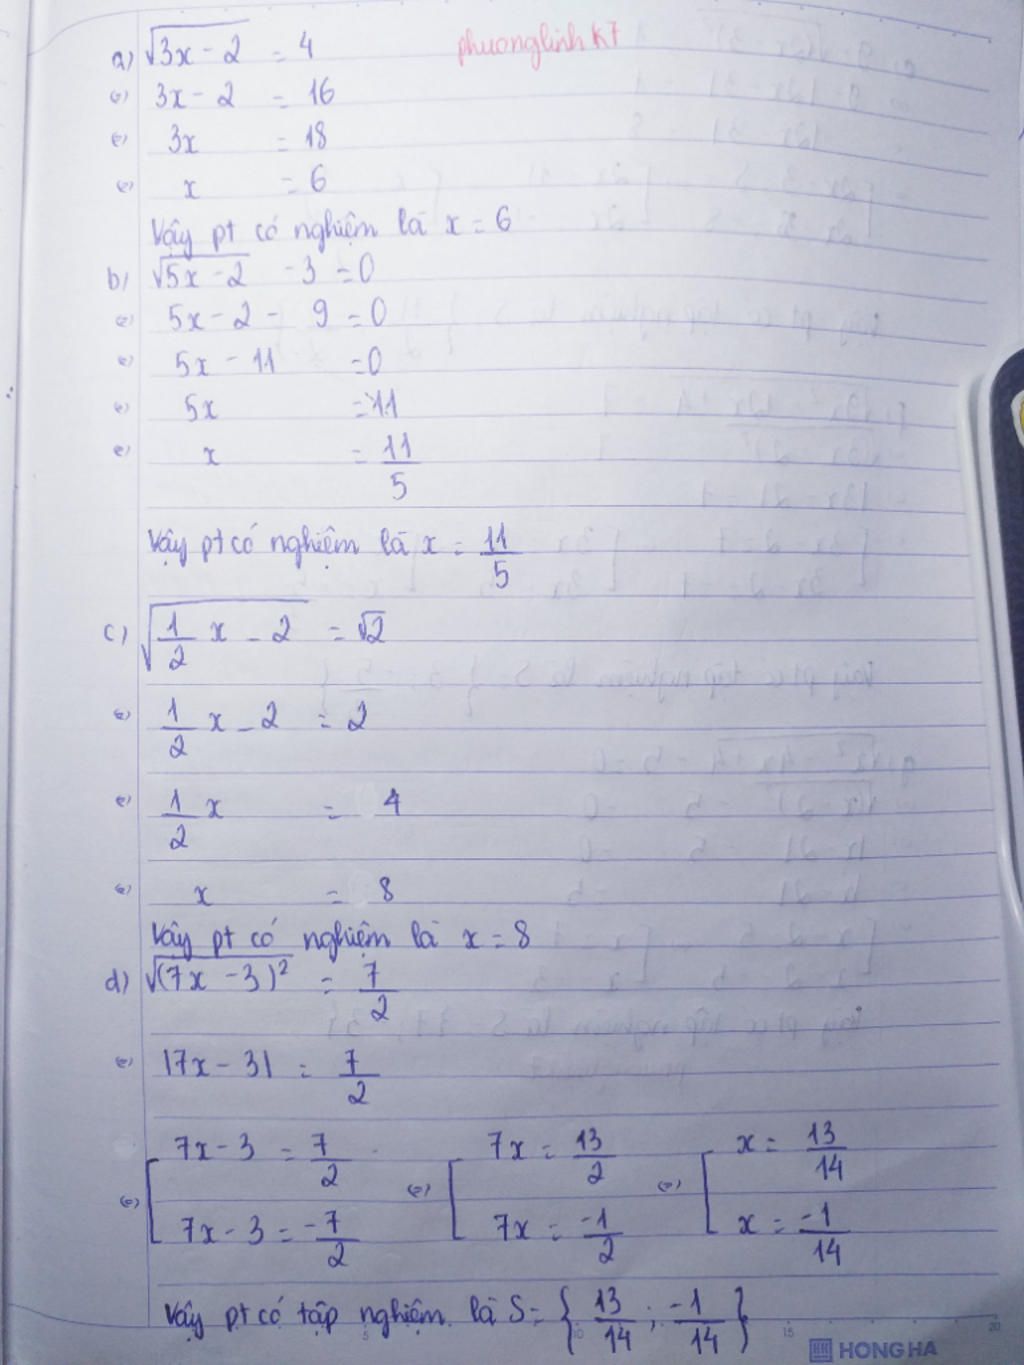 a) √3x - 2 = 4 phuonglinh k7
(=) 3x - 2 = 16
(=) 3x = 18
(=) x = 6
Vậy pt có nghiệm là x = 6
b) √5x - 2 - 3 = 0
(=) 5x - 2 - 9 = 0
(=) 5x - 11 = 0
(=) 5x = 11
(=) x = 11/5
Vậy pt có nghiệm là x = 11/5
c) √1/2 x - 2 = √2
(=) 1/2 x - 2 = 2
(=) 1/2 x = 4
(=) x = 8
Vậy pt có nghiệm là x = 8
d) √(7x - 3)² = 7/2
(=) |7x - 3| = 7/2
(=) [ 7x - 3 = 7/2 (=) [ 7x = 13/2 (=) [ x = 13/14
7x - 3 = -7/2 7x = -1/2 x = -1/14
Vậy pt có tập nghiệm là S = { 13/14 ; -1/14 }
5 10 15 20
HONG HA